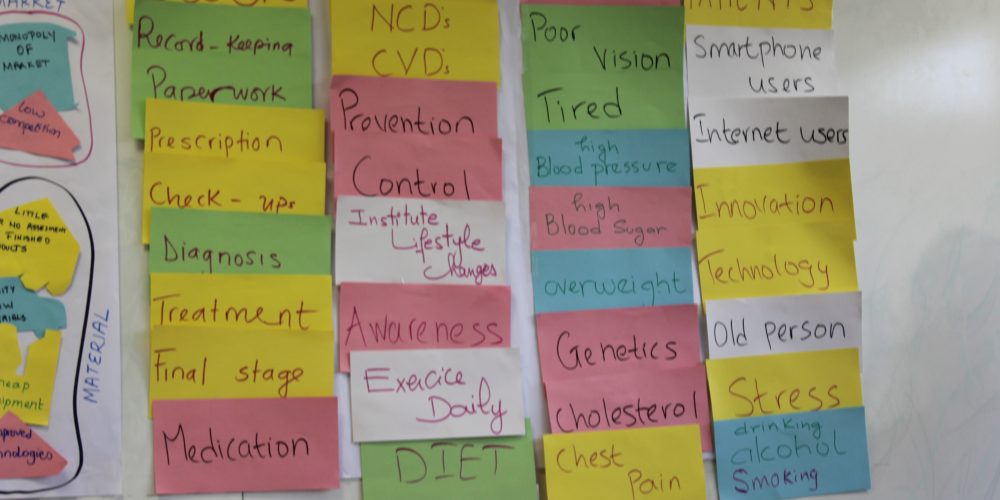 MARKET
MONOPOLY
OF
MARKET
Low
Competition
LITTLE
FINISHED
MATERIAL
Record-Keeping
Paperwork
Prescription
Check-ups
Diagnosis
Treatment
Final stage
Medication
NCDs
CVDs
Prevention
Control
Institute
Lifestyle
Changes
Awareness
Exercice
Daily
DIET
Poor
Vision
Tired
high
Blood pressure
high
Blood Sugar
overweight
Genetics
Cholesterol
Chest
Pain
PATIENTS
Smartphone
users
Internet users
Innovation
Technology
Old person
Stress
drinking
alcohol
Smoking